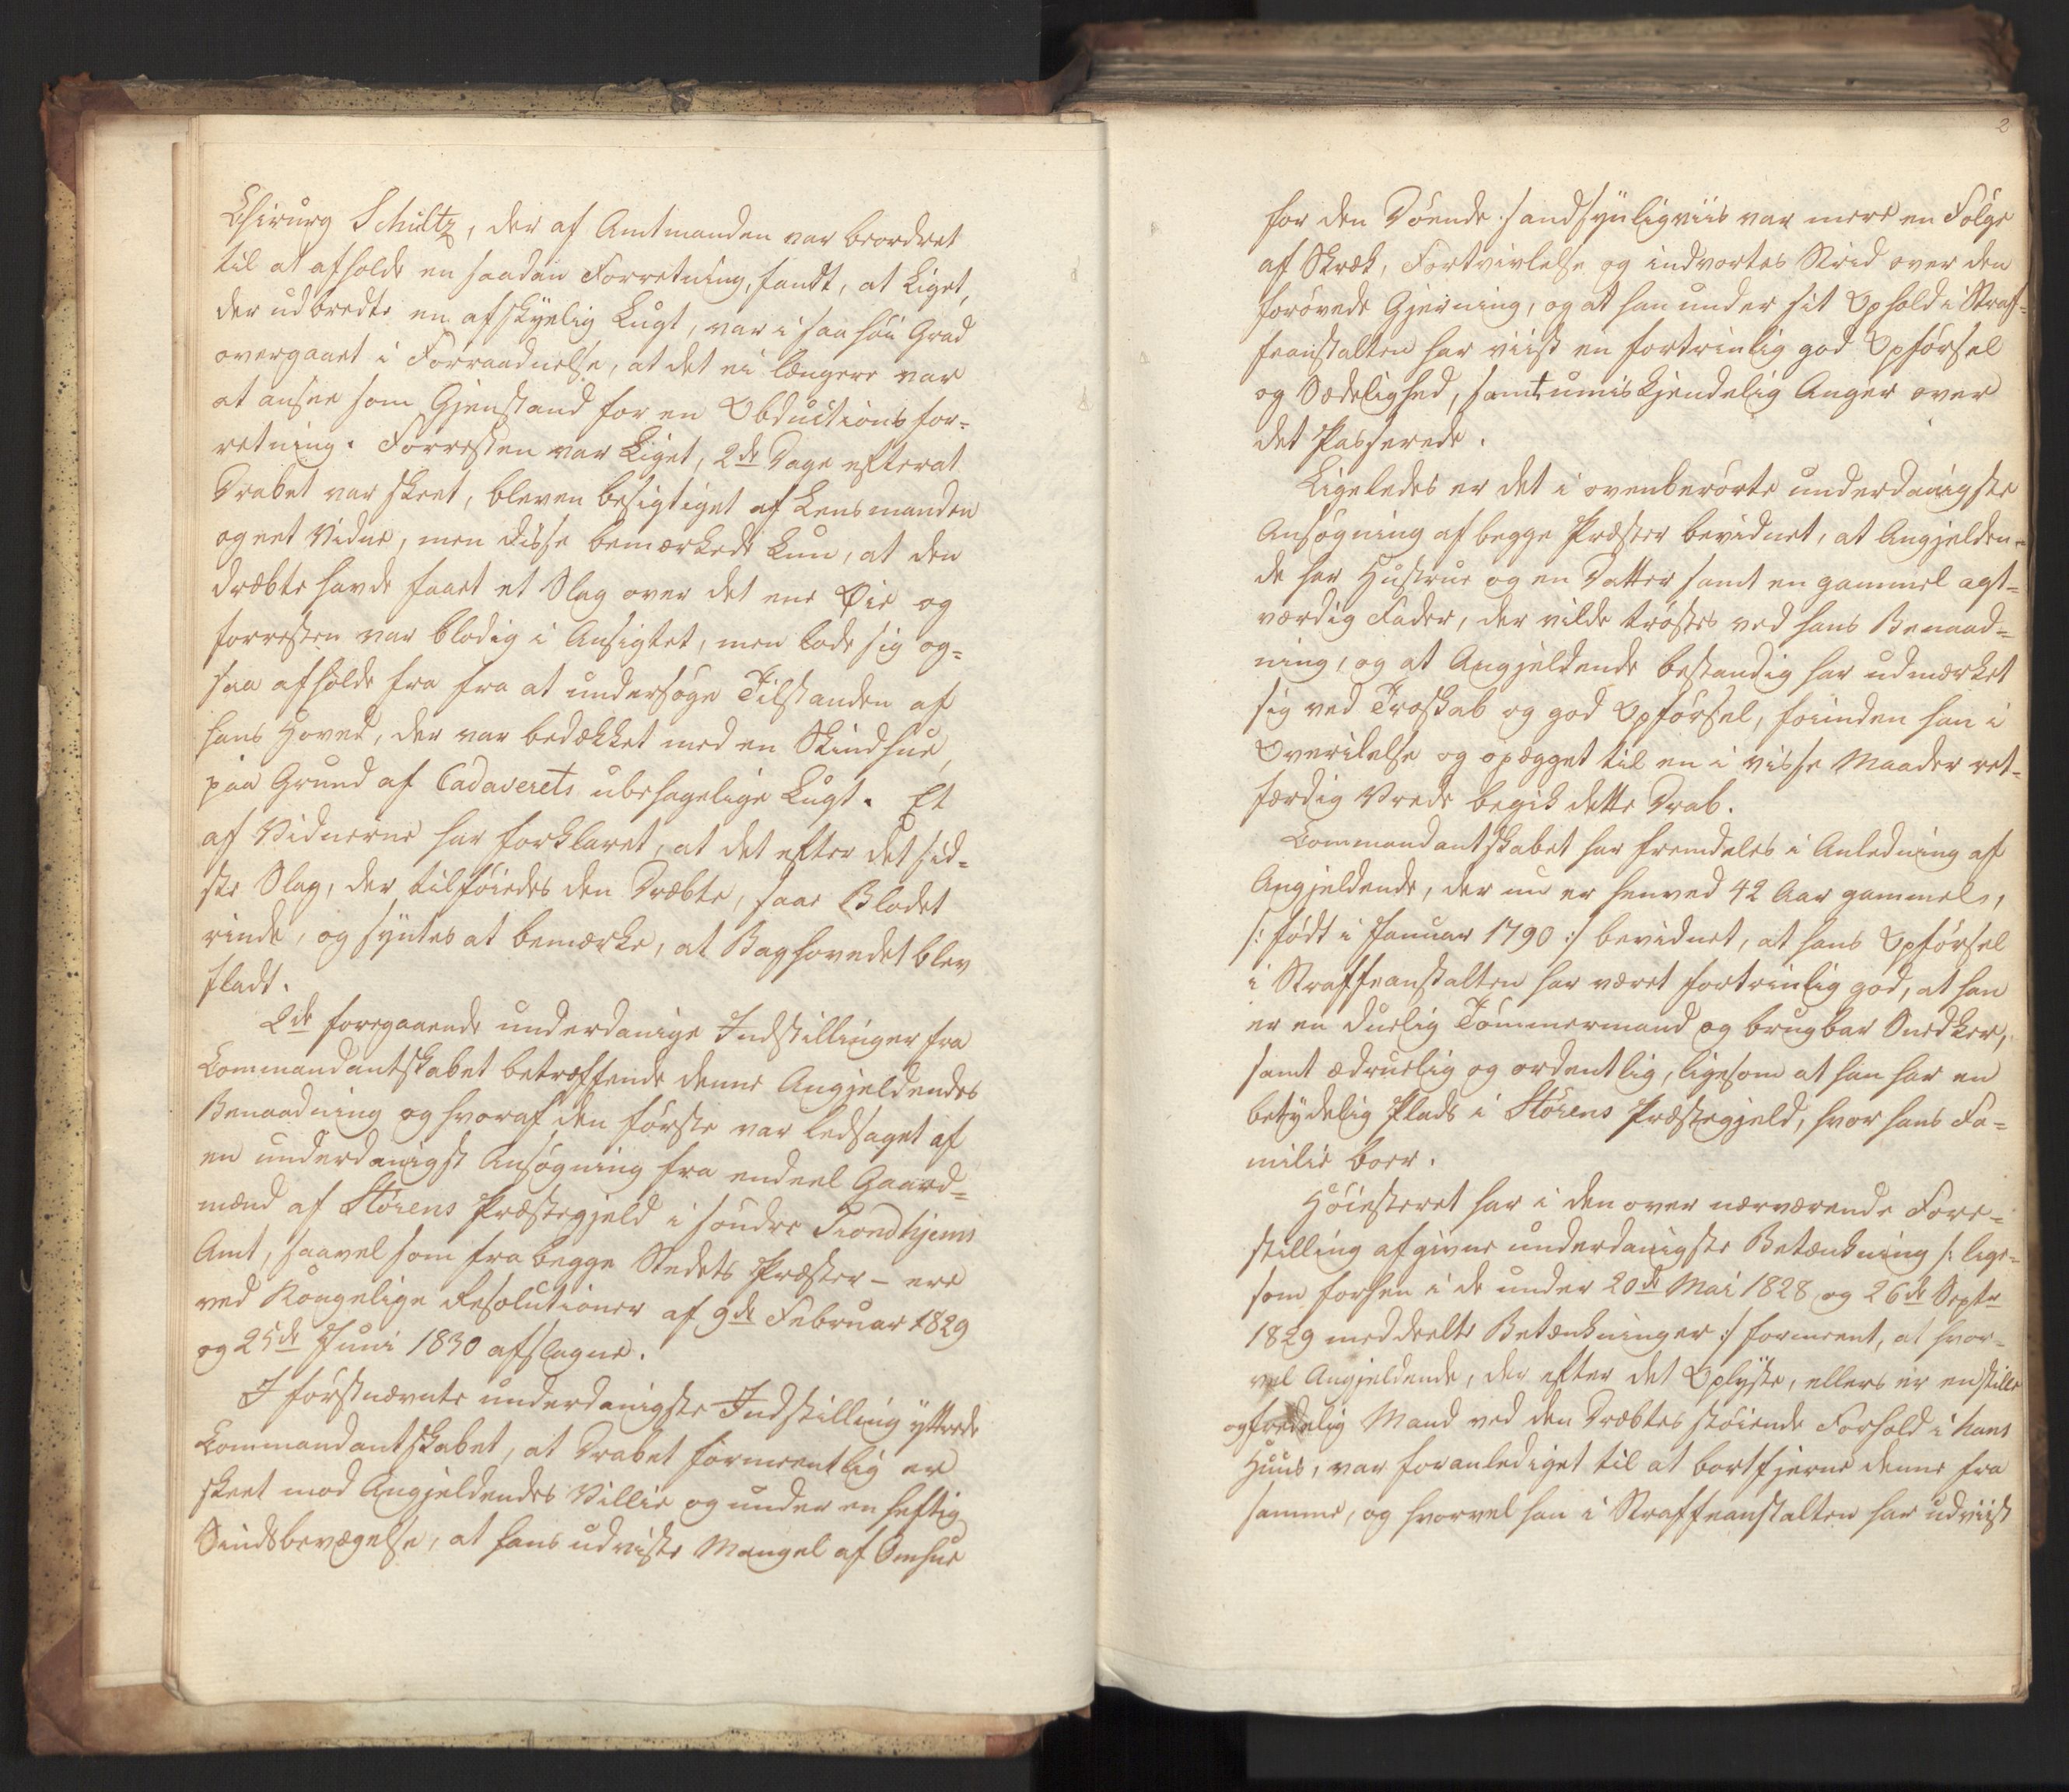 Chirurg Schultz, der af Amtmanden var beordret
til at afholde en saadan Forretning, fandt, at Liget,
der udbredte en afskyelig Lugt, var i saa høi Grad
overgaaet i Forraadnelse, at det ei længere var
at ansee som Gjenstand for en Obductionsfor=
retning. Forresten var Liget, 2de Dage efterat
Drabet var skeet, bleven besigtiget af Lensmanden
og eet Vidne, men disse bemærkede kun, at den
dræbte havde faaet et Slag over det ene Øie og
forresten var blodig i Ansigtet, men lode sig og=
saa afholde fra fra at undersøge Tilstanden af
hans Hoved, der var bedækket med en Skindhue,
paa Grund af Cadaverets ubehagelige Lugt. Et
af Vidnerne har forklaret, at det efter det sid=
ste Slag, der tilføiedes den Dræbte, saae Blodet
rinde, og syntes at bemærke, at Baghovedet blev
fladt.
2de foregaaende underdanige Indstillinger fra
Commandantskabet betræffende denne Angjeldendes
Benaadning og hvoraf den første var ledsaget af
en underdanigst Ansøgning fra endeel Gaard=
mænd af Størens Præstegjeld i søndre Trondhjems
Amt, saavelsom fra begge Stedets Præster – ere
ved Kongelige Resolutioner af 9de Februar 1829
og 25de Juni 1830 afslagne.
I førstnævnte underdanigste Indstilling yttrede
Commandantskabet, at Drabet formeentlig er
skeet mod Angjeldendes Villie og under en heftig
Sindsbevægelse, at hans udviste Mangel af Omhue
2
for den Døende sandsynligviis var mere en Følge
af Skræk, Fortvivlelse og indvortes Strid over den
forøvede Gjerning, og at han under sit Ophold i Straf=
feanstalten har viist en fortrinlig god Opførsel
og Sædelighed, samt umiskjendelig Anger over
det Passerede.
Ligeledes er det i ovenberørte underdanigste
Ansøgning af begge Præster bevidnet, at Angjelden=
de har Hustrue og en Datter samt en gammel agt=
værdig Fader, der vilde trøstes ved hans Benaad=
ning, og at Angjeldende bestandig har udmærket
sig ved Troskab og god Opførsel, forinden han i
Overilelse og opægget til en i visse Maader ret=
færdig Vrede begik dette Drab.
Commandantskabet har fremdeles i Anledning af
Angjeldende, der nu er henved 42 Aar gammel,
/: født i Januar 1790 :/ bevidnet, at hans Opførsel
i Straffeanstalten har været fortrinlig god, at han
er en duelig Tømmermand og brugbar Snedker,
samt ædruelig og ordentlig, ligesom at han har en
betydelig Plads i Størens Præstegjeld, hvor hans Fa=
milie boer.
Høiesteret har i den over nærværende Fore=
stilling afgivne underdanigste Betænkning /: lige=
som forhen i de under 20de Mai 1828 og 26de Septr
1829 meddeelte Betænkninger :/ formeent, at hvor=
vel Angjeldende, der efter det Oplyste, ellers er en stille
og fredelig Mand ved den Dræbtes støiende Forhold i hans
Huus, var foranlediget til at bortfjerne denne fra
samme, og hvorvel han i Straffeanstalten har udviist